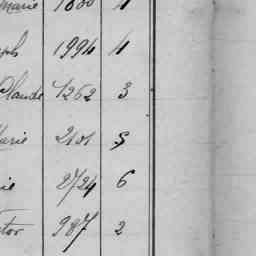 Marie 1880 4
ph 1994 4
Claude 1262 3
Marie 2101 5
ie 2724 6
tor 987 2